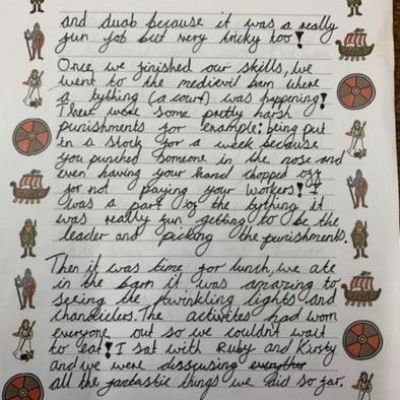 and duab because it was a really
fun job but very tricky too!
Once we finished our skills, we
went to the medievil barn where
a bything (a court) was happening!
There were some pretty harsh
punishments for example: being put
in a stock for a week because
you punched someone in the nose and
even having your hand chopped off
for not paying your workers! I
was a part of the bything, it
was really fun getting to be the
leader and picking the punishments.
Then it was time for lunch, we ate
in the barn it was amazing to
seeing the twinkling lights and
chandeliers. The activites had worn
everyone out so we couldn't wait
to eat! I sat with Ruby and Kirsty
and we were disscusing
all the fantastic things we did so far.